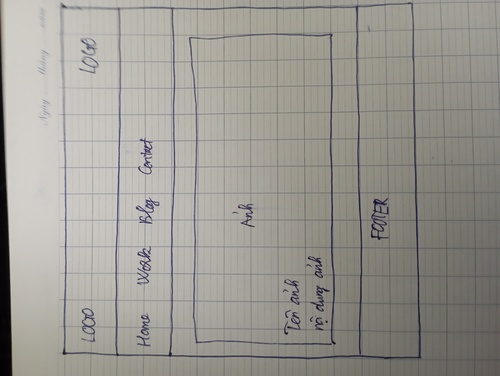 Ngày tháng năm
LOGO LOGO
Home Work Blog Contact
Ảnh
Tên ảnh
nội dung ảnh
FOOTER